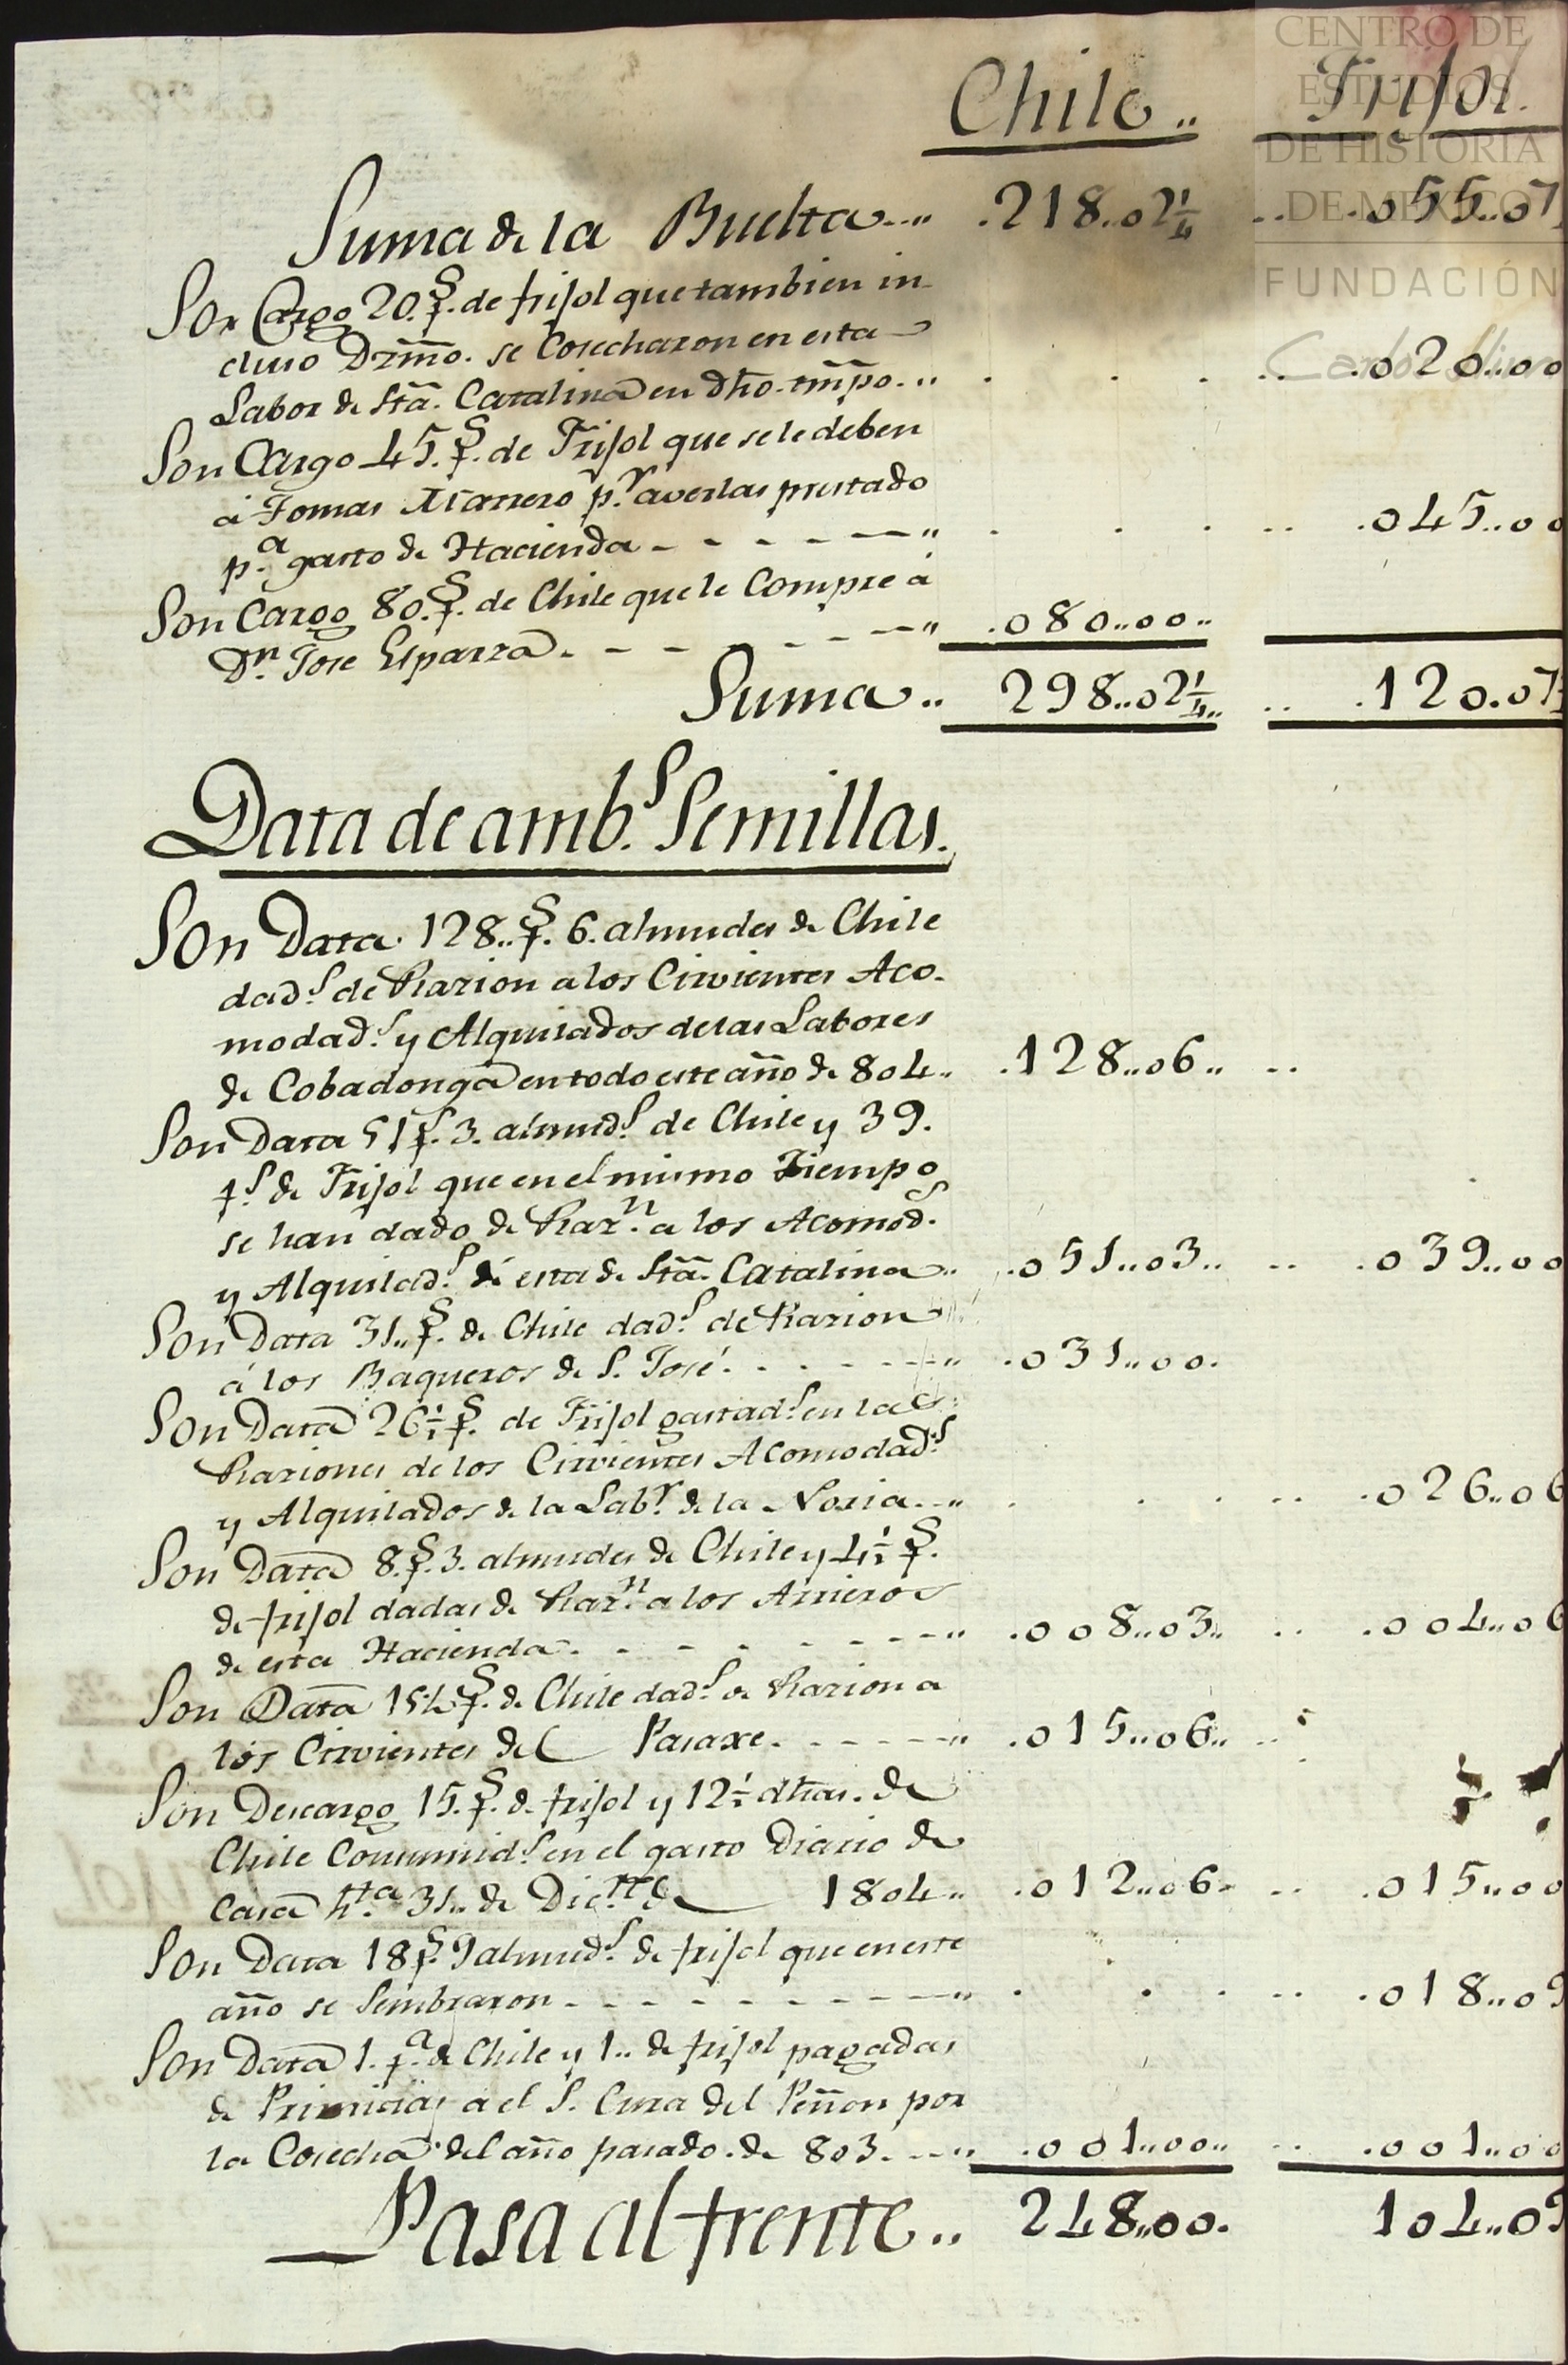 Chile.. Frisol.
Suma de la Buelta.... .218..02¼ .. .055..07
Son Cargo 20. fs. de frisol que tambien in-
cluso Dzmo. se Cosecharon en esta
Labor de Sta. Catalina en dho. tmpo. .. . . . .. .020..00
Son Cargo 45. fs. de Frisol que se le deben
a Tomas Marrero pr. averlas prestado
pa. gasto de Hacienda - - - - - — " . . . .. .045..00
Son Cargo 80. fs. de Chile que le Compre a
Dn. Jose Esparza. - - - - - — " .080..00..
Suma.. 298..02¼.. .. .120..07
Data de ambs. Semillas.
Son Data 128.. fs. 6. almudes de Chile
dads. de Razion a los Cirvientes Aco-
modads. y Alquilados de las Labores
de Cobadonga en todo este año de 804.. .128..06.. ..
Son Data 51 fs. 3. almuds. de Chile y 39.
fs. de Frisol que en el mismo Tiempo
se han dado de Razn. a los Acomods.
y Alquilads. de esta de Sta. Catalina.. .051..03.. .. .039..00
Son Data 31.. fs. de Chile dads. de Razion
á los Baqueros de S. José. - - - - - — " .031..00.
Son Data 26½ fs. de Frisol gastads. en las
Raziones de los Cirvientes Acomodads.
y Alquilados de la Labr. de la Noria... . . . .. .026..06
Son Data 8. fs. 3. almudes de Chile y 4½ fs.
de frisol dadas de Razn. a los Arrieros
de esta Hacienda. - - - - - - - — " .008..03.. .. .004..06
Son Data 15½ fs. de Chile dads. de Razion a
los Cirvientes del Pasaxe. - - - - - " .015..06.. ..
Son Descargo 15. fs. de frisol y 12½ dhas. de
Chile Consumids. en el gasto Diario de
Casa hta. 31.. de Dicre. de 1804.. .012..06. .. .015..00
Son Data 18 fs. 9 almuds. de frisol que en este
año se Sembraron - - - - - - - — " . . . .. .018..09
Son Data 1. fa. de Chile y 1.. de frisol pagadas
de Primicias a el S. Cura del Peñon por
la Cosecha del año pasado de 803. - - " .001..00.. .. .001..00
Pasa al frente.. 248..00. 104..09
CENTRO DE
ESTUDIOS
DE HISTORIA
DE MEXICO
FUNDACIÓN